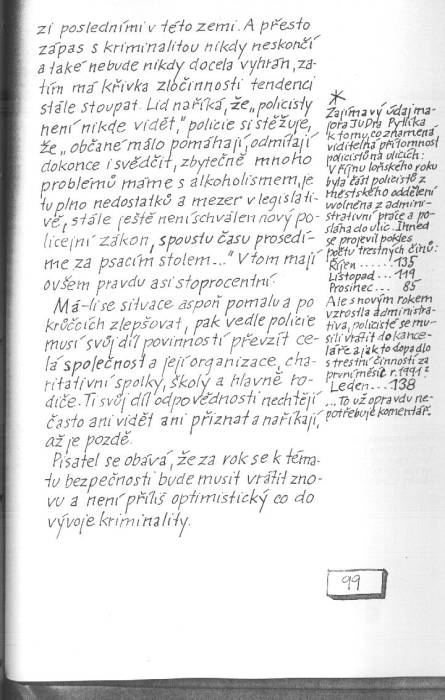 zi posledními v této zemi. A přesto
zápas s kriminalitou nikdy neskončí
a také nebude nikdy docela vyhrán, za-
tím má křivka zločinnosti tendenci
stále stoupat. Lid naříká, že „policisty
není nikde vidět," policie si stěžuje,
že „občané málo pomáhají, odmítají
dokonce i svědčit, zbytečně mnoho
problémů máme s alkoholismem, je
tu plno nedostatků a mezer v legislati-
vě, stále ještě není schválen nový po-
licejní zákon, spoustu času prosedí-
me za psacím stolem..." V tom mají
ovšem pravdu asi stoprocentní.
Má-li se situace aspoň pomalu a po
krůčcích zlepšovat, pak vedle policie
musí svůj díl povinností převzít ce-
lá společnost a její organizace, cha-
ritativní spolky, školy a hlavně ro-
diče. Ti svůj díl odpovědnosti nechtějí
často ani vidět ani přiznat a naříkají,
až je pozdě.
Pisatel se obává, že za rok se k téma-
tu bezpečnosti bude muset vrátit zno-
vu a není příliš optimistický co do
vývoje kriminality.
*
Zajímavý údaj ma-
jora JUDra Pytlíka
k tomu, co znamená
viditelná přítomnost
policistů na ulicích:
V říjnu loňského roku
byla část policistů z
městského oddělení
uvolněna z admini-
strativní práce a po-
slána do ulic. Ihned
se projevil pokles
počtu trestných činů:
Říjen ...... 135
Listopad ... 119
Prosinec ... 85
Ale s novým rokem
vzrostla administra-
tiva, policisté se mu-
sili vrátit do kance-
láře a jak to dopadlo
s trestnou činností za
první měsíc r. 1991?
Leden ... 138
...To už opravdu ne-
potřebuje komentář.
99